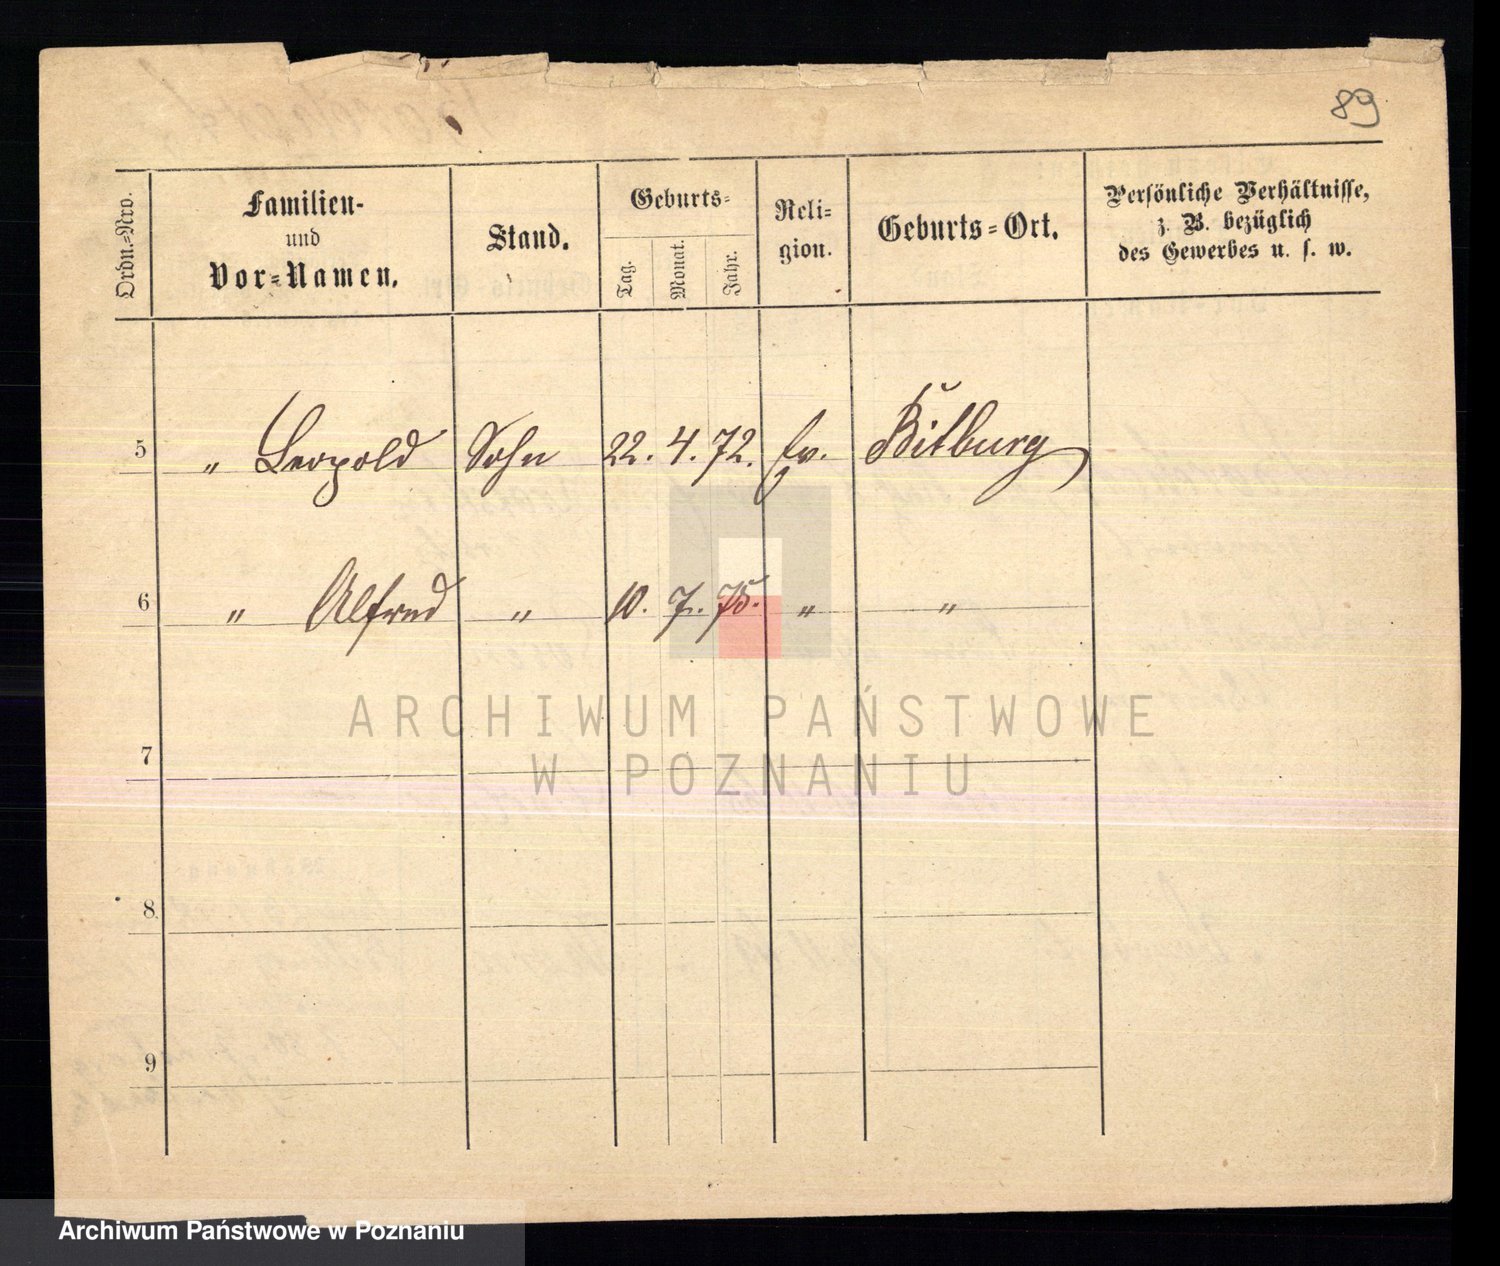 89
Ordn.=Nro.
Familien-
und
Vor=Namen.
Stand.
Geburts=
Tag.
Monat.
Jahr.
Reli=
gion.
Geburts=Ort.
Persönliche Verhältnisse,
z. B. bezüglich
des Gewerbes u. s. w.
5 " Leopold Sohn 22. 4. 72. Ev. Bitburg
6 " Alfred " 10. 7. 75. " "
7
8
9
ARCHIWUM PAŃSTWOWE
W POZNANIU
Archiwum Państwowe w Poznaniu